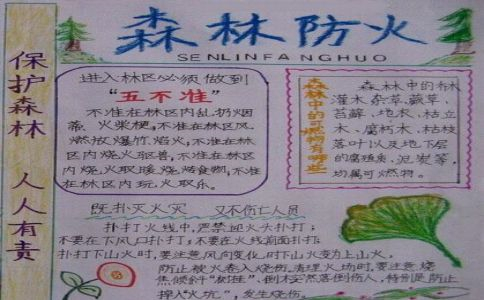 森林防火
SENLINFANGHUO
保护森林 人人有责
进入林区必须做到
“五不准”
不准在林区内乱扔烟
蒂、火柴梗,不准在林区风
燃放爆竹、焰火,不准在林
区内烧火驱兽,不准在林区内
烧火取暖、烧烤食物,不准在
林区内玩火取乐。
森林中的可燃物有哪些
森林中的林
灌木、杂草、蕨草、
苔藓、地衣、枯立
木、腐朽木、枯枝
落叶以及地下层
的腐殖质、泥炭等,
均属可燃物。
既扑灭火灾 又不伤亡人员
扑打火线中,严禁迎火头扑打;
不要在下风口扑打;不要在火线前面扑打;
扑打下山火时,要注意风向变化时下山火变为上山火,
防止被火卷入烧伤。清理火场时,要注意烧
焦倾斜“树挂”、倒木突然落倒伤人,特别是防止
掉入“火坑”,发生烧伤。